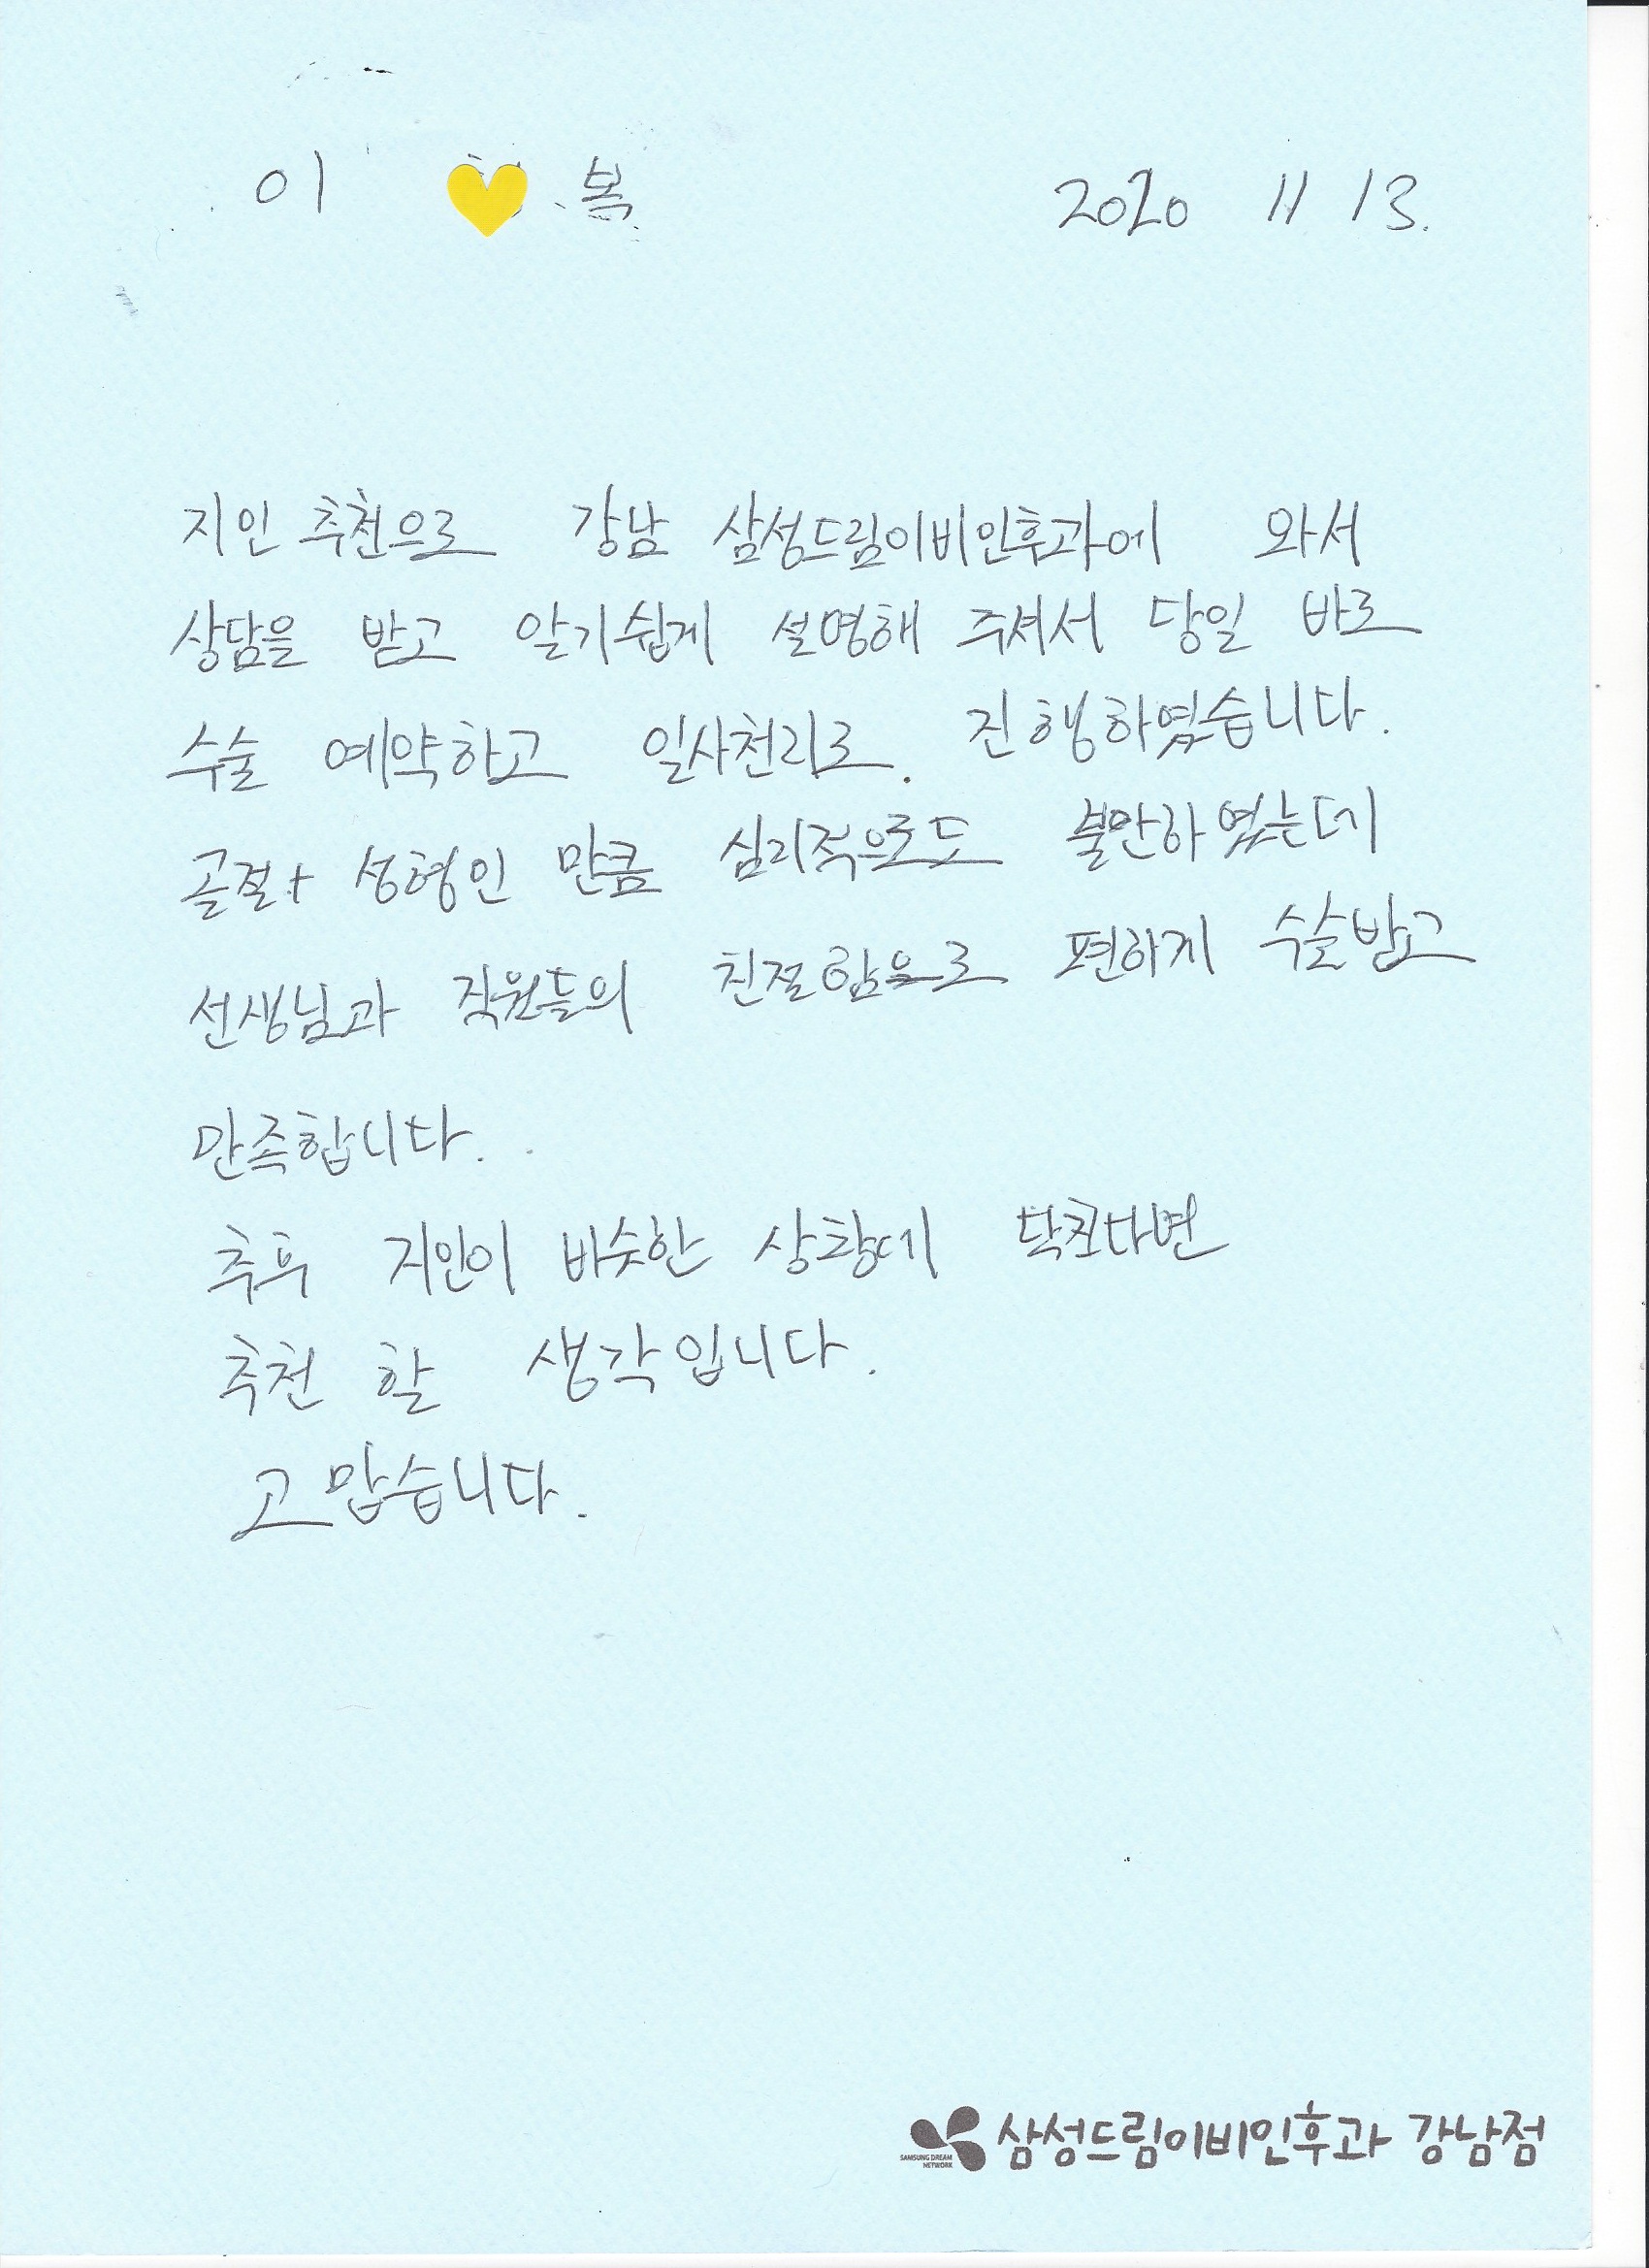 이 복 2020 11 13.
지인 추천으로 강남 삼성드림이비인후과에 와서
상담을 받고 알기쉽게 설명해 주셔서 당일 바로
수술 예약하고 일사천리로 진행하였습니다.
골절+ 성형인 만큼 심리적으로도 불안하였는데
선생님과 직원들의 친절함으로 편하게 수술받고
만족합니다.
추후 지인이 비슷한 상황에 닥친다면
추천 할 생각입니다.
고맙습니다.
SAMSUNG DREAM NETWORK 삼성드림이비인후과 강남점